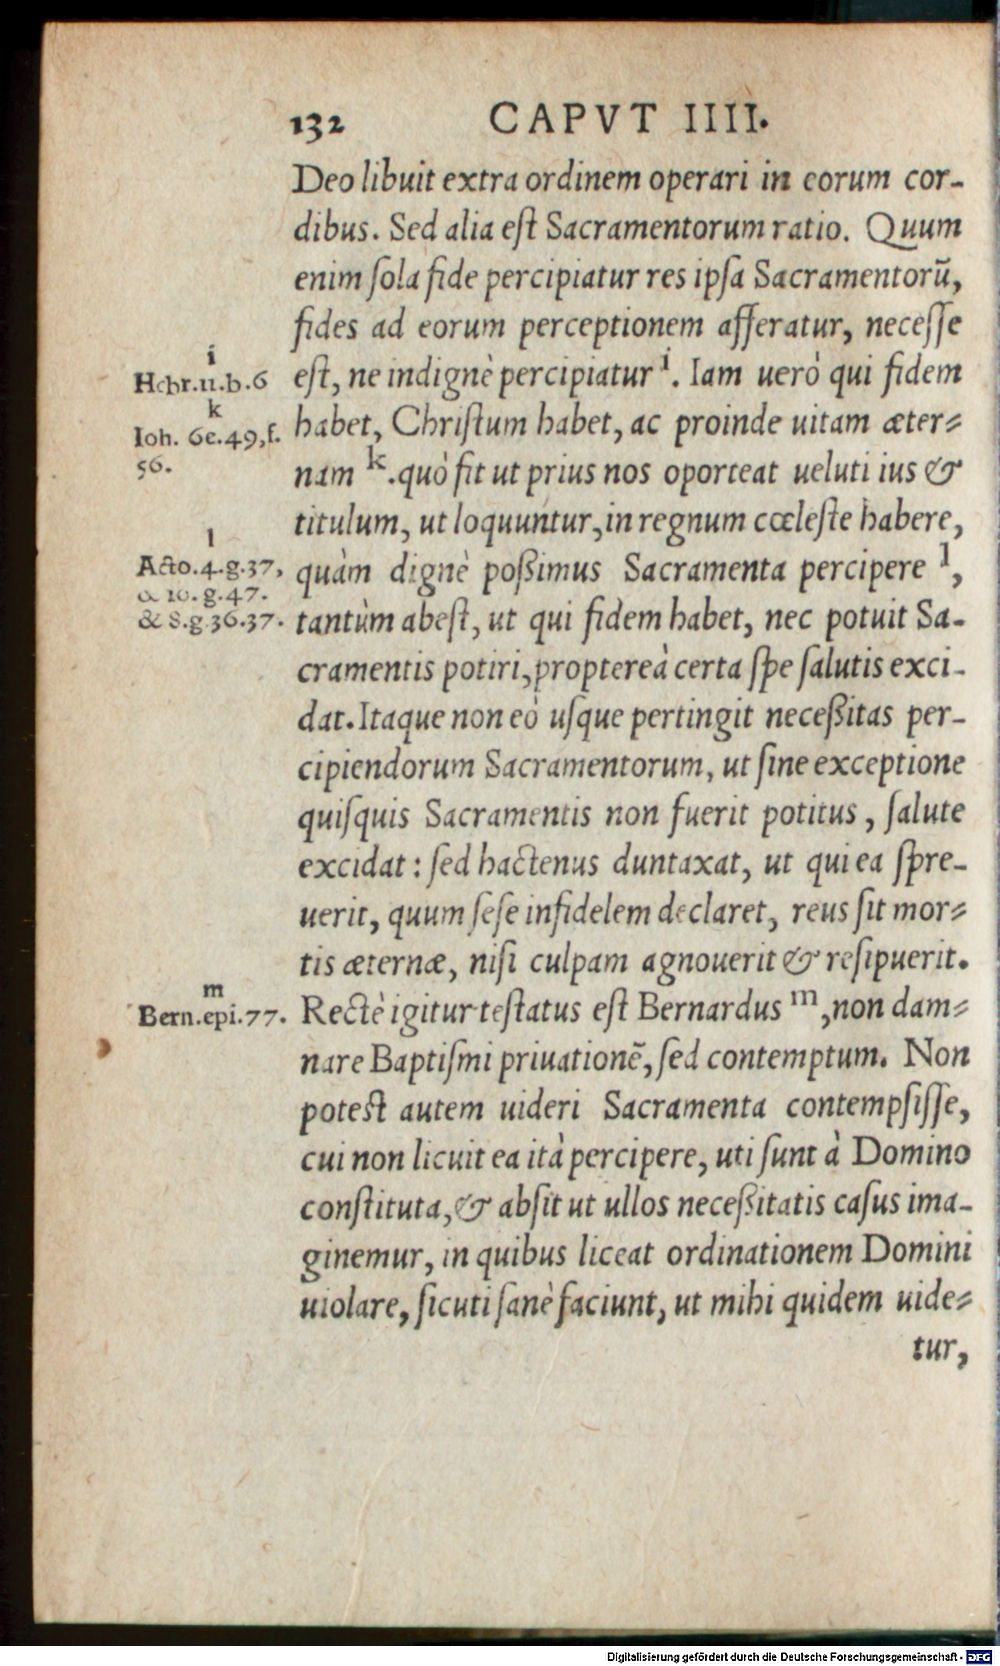 132 CAPVT IIII.
Deo libuit extra ordinem operari in eorum cor-
dibus. Sed alia eſt Sacramentorum ratio. Quum
enim ſola fide percipiatur res ipſa Sacramentorū,
fides ad eorum perceptionem afferatur, neceſſe
eſt, ne indignè percipiatur i. Iam uerò qui fidem
habet, Chriſtum habet, ac proinde uitam æter-
nam k. quò fit ut prius nos oporteat ueluti ius &
titulum, ut loquuntur, in regnum cœleſte habere,
quàm dignè poßimus Sacramenta percipere l,
tantùm abeſt, ut qui fidem habet, nec potuit Sa-
cramentis potiri, proptereà certa ſpe ſalutis exci-
dat. Itaque non eò uſque pertingit neceßitas per-
cipiendorum Sacramentorum, ut ſine exceptione
quiſquis Sacramentis non fuerit potitus, ſalute
excidat: ſed hactenus duntaxat, ut qui ea ſpre-
uerit, quum ſeſe infidelem declaret, reus ſit mor-
tis æternæ, niſi culpam agnouerit & reſipuerit.
Rectè igitur teſtatus eſt Bernardus m, non dam-
nare Baptiſmi priuationē, ſed contemptum. Non
poteſt autem uideri Sacramenta contempſiſſe,
cui non licuit ea ità percipere, uti ſunt à Domino
conſtituta, & abſit ut ullos neceßitatis caſus ima-
ginemur, in quibus liceat ordinationem Domini
uiolare, ſicuti ſanè faciunt, ut mihi quidem uide-
tur,
i
Hebr.11.b.6
k
Ioh. 6e.49,f.
56.
l
Acto.4.g.37,
& 10.g.47.
& 8.g.36.37.
m
Bern.epi.77.
Digitalisierung gefördert durch die Deutsche Forschungsgemeinschaft - DFG